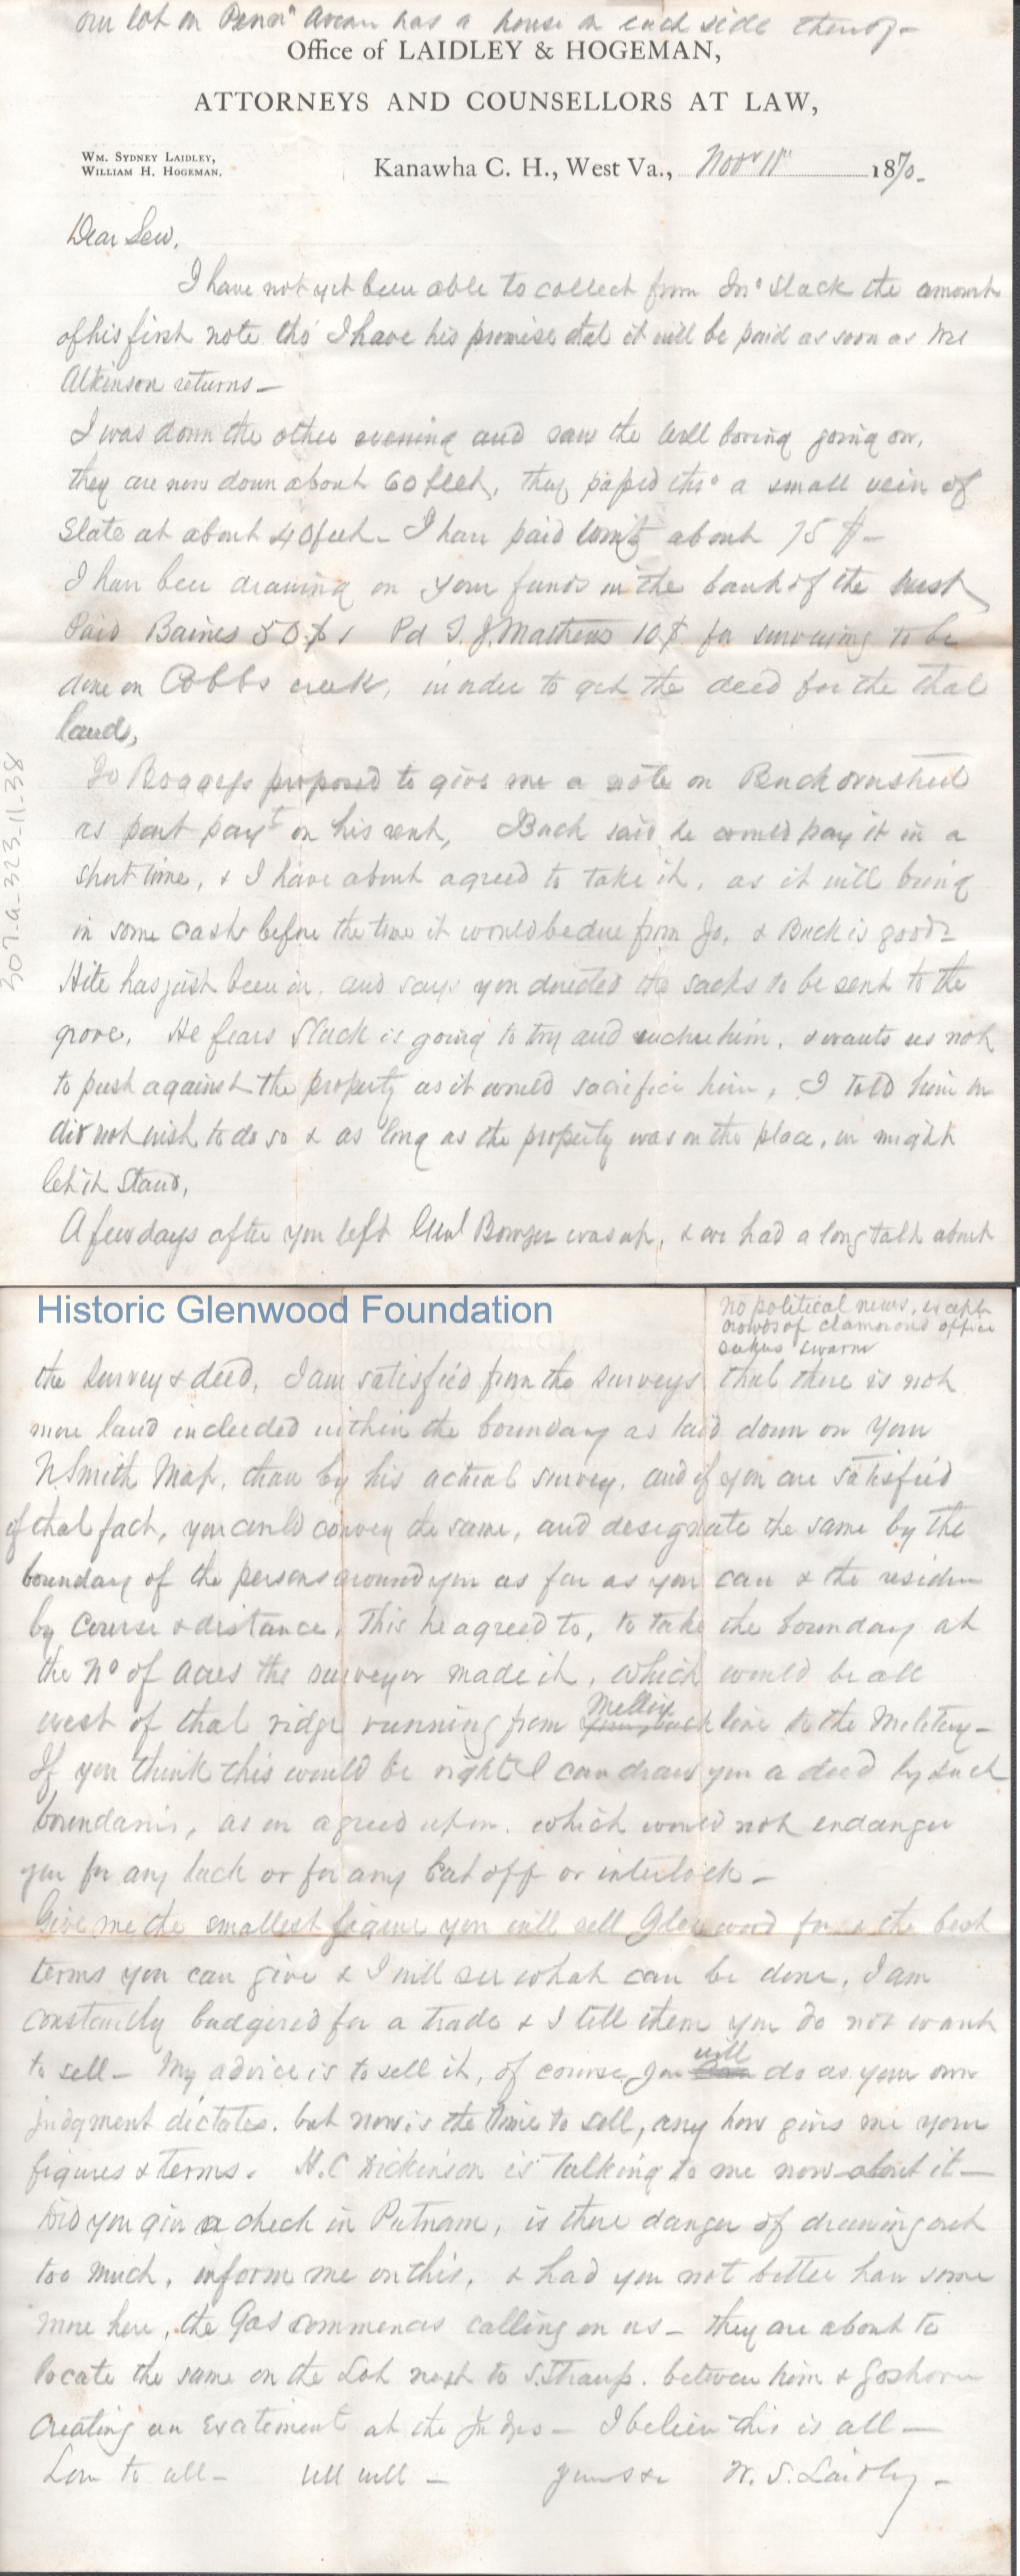 our lot on Penn^a Avenue has a house on each side thereof-
Office of LAIDLEY & HOGEMAN,
ATTORNEYS AND COUNSELLORS AT LAW,
WM. SYDNEY LAIDLEY,
WILLIAM H. HOGEMAN.
Kanawha C. H., West Va., Nov^r 11^th 1870-
Dear Lew,
I have not yet been able to collect from Jn^o Slack the amount
of his first note tho' I have his promise that it will be paid as soon as Wes
Atkinson returns -
I was down the other evening and saw the well boring going on,
they are now down about 60 feet, they passed thro a small vein of
Slate at about 40 feet - I have paid about 75 $ -
I have been drawing on your funds in the bank of the West
Paid Baines 50 $ & Pd T. J. Mathews 10 $ for surveying to be
done on Cobbs creek, in order to get the deed for the that
land,
Jo Boggess proposed to give me a note on Buck
as part pay^t on his rent, Buck said he would pay it in a
short time, & I have about agreed to take it, as it will bring
in some cash before the time it would be due from Jo, & Buck is good -
Hite has just been in, and says you directed the sacks to be sent to the
grove. He fears Slack is going to try and him, & wants us not
to push against the property as it would sacrifice him, I told him we
did not wish to do so & as long as the property was on the place, we might
let it stand,
A few days after you left Genl Bowyer was up, & we had a long talk about
307-a-323-11-38
Historic Glenwood Foundation
no political news, except
crowds of clamorous office
seekers swarm
the survey & deed, I am satisfied from the surveys that there is not
more land included within the boundary as laid down on your
N Smith Map, than by his actual survey, and if you are satisfied
of that fact, you could convey the same, and designate the same by the
boundary of the persons around you as far as you can & the residue
by course & distance, This he agreed to, to take the boundary at
the N^o of acres the surveyor made it, which would be all
west of that ridge running from line to the Military -
If you think this would be right I can draw you a deed by such
boundaries, as we agreed upon, which would not endanger
you for any lack or for any cut off or interlock -
Give me the smallest figure you will sell Glenwood for & the best
terms you can give & I will see what can be done, I am
constantly badgered for a trade & I tell them you do not want
to sell - My advice is to sell it, of course you will do as your own
judgment dictates, but now is the time to sell, any how give me your
figures & terms. H. C Dickinson is talking to me now about it -
Did you give a check in Putnam, is there danger of drawing out
too much, inform me on this, & had you not better have some
more here, the Gas commences calling on us - they are about to
locate the same on the Lot next to S. Straup. between him & Goshorn
creating an Excitement at the - I believe this is all -
Love to all - all well - yours &c W. S. Laidley -